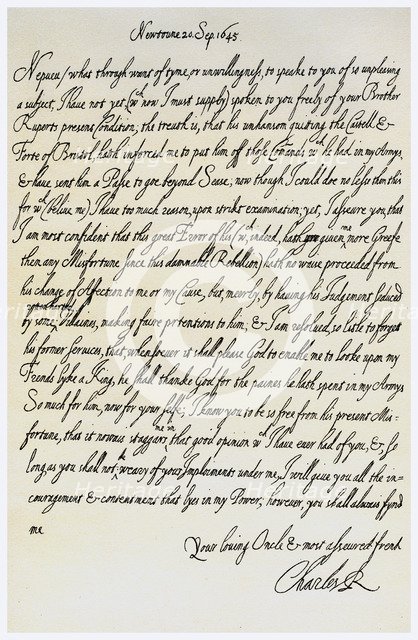 Newtoune 20. Sep. 1645.
Nepueu /what through want of tyme, or unwillingness, to speake to you of so unpleasing
a subject, I have not yet (wch now I must supply) spoken to you freely of your Brother
Ruperts present Condition; the treuth is, that his unhansom quiting the Castell &
Forte of Bristol, hath inforced me to put him off those Comands wch he had in my Armys,
& have sent him a Passe to goe beyond Sease; now though I could doe no lesse than this
for wch (beliue me) I have too much reason, upon strikt examination; yet, I asseure you, that
I am most confident that this great Error of his (wch, indeed, hath given me more Greefe
then any Misfortune since this damnable Rebellion) hath no waise proceeded from
his change of Affection to me or my Cause, but, meerly, by having his Judgement seduced
by some Villaines, making faire pretentions to him; & I am resolved, so litle to forget
his former Services, that, whensoever it shall please God to enable me to looke upon my
Frends lyke a King, he shall thanke God for the paines he hath spent in my Armys
So much for him, now for your selfe; I know you to be so free from his present Mis-
fortune, that it nowais staggers me in that good opinion wch I have ever had of you, & so
long as you shall not be weary of your Imployments under me, I will give you all the in-
couragement & contentment that lyes in my Power; however, you shall always fynd
me
Your loving Oncle & most asseured frend
Charles R
heritage
Heritage